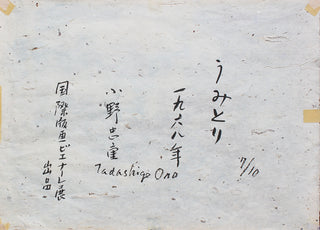 うみとり
7/10
一九六八年
小野忠重
Tadashige Ono
国際版画ビエンナーレ展
出品